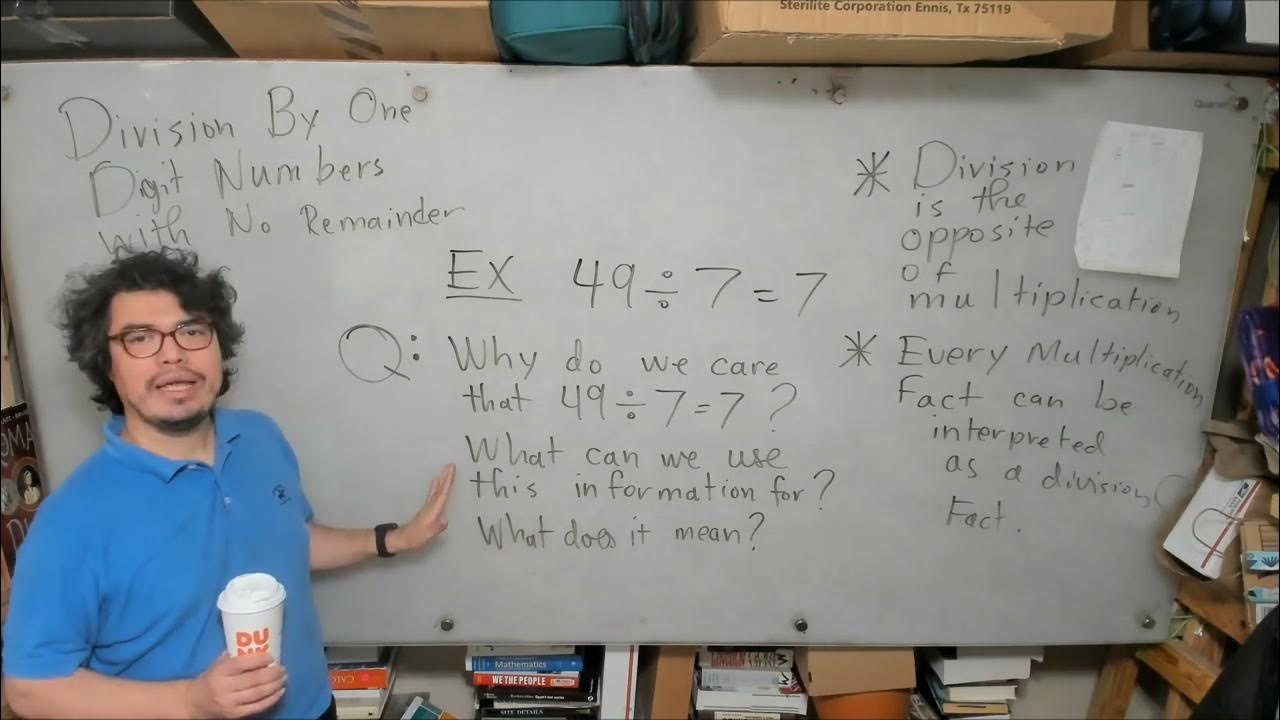 Sterilite Corporation Ennis, Tx 75119
Division By One
Digit Numbers
with No Remainder
EX 49÷7=7
Q: Why do we care
that 49÷7=7?
What can we use
this information for?
What does it mean?
* Division
is the
opposite
of
multiplication
* Every Multiplication
Fact can be
interpreted
as a division
Fact.
DU
Mathematics
WE THE PEOPLE
SITE DETAILS
LINCOLN